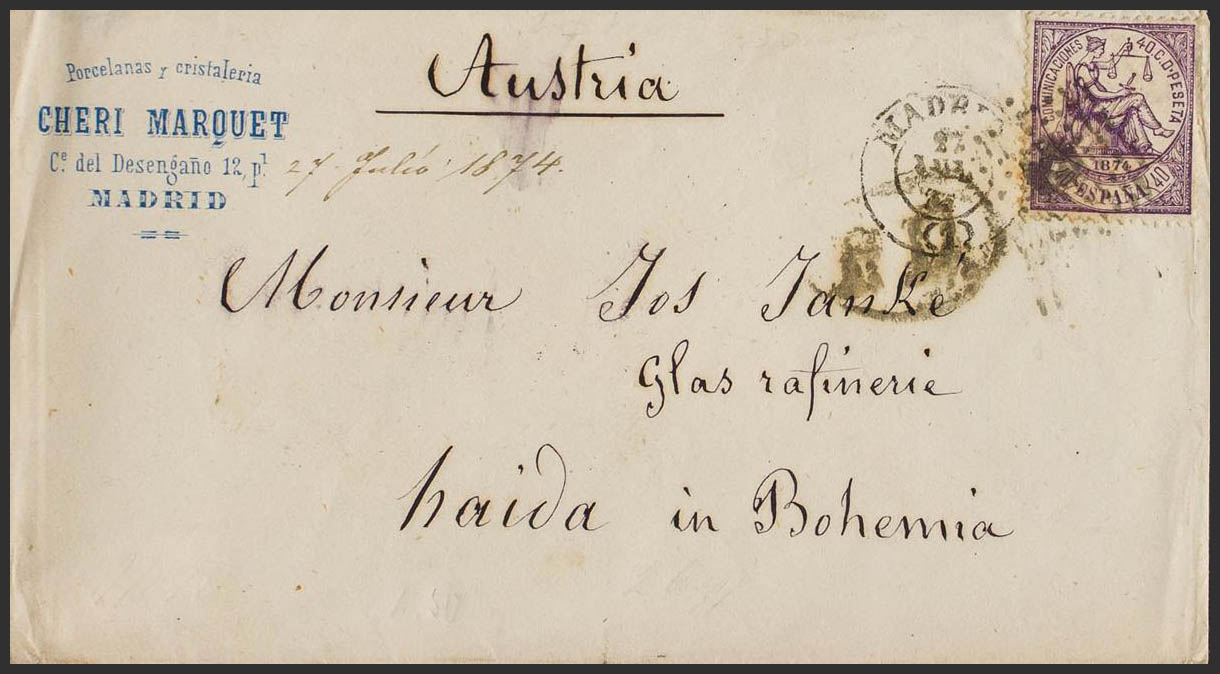 Porcelanas y cristaleria
CHERI MARQUET
Cᵉ del Desengaño 12, pˡ
MADRID
Austria
27 Julio 1874.
MADRI
27
JUL
74
(1)
COMUNICACIONES
40 C. D. PESETA
1874
ESPAÑA
40
Monsieur Jos Janké
Glas rafinerie
haida in Bohemia